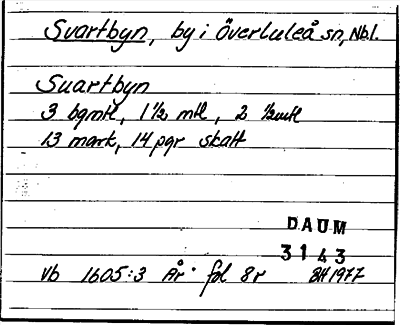 Svartbyn, by i Överluleå sn, Nbl.
Suartbyn
3 bgmtl, 1 1/2 mtl, 2 1/2mtl
13 mark, 14 pgr skatt
DAUM
3143
Vb 1605:3 År fol 8r BH 1977